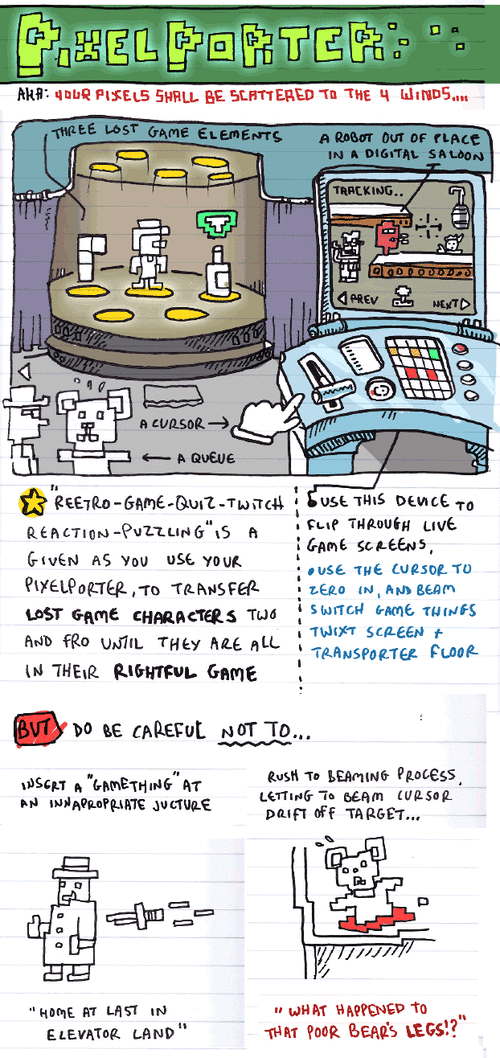 PIXELPORTER
AKA: YOUR PIXELS SHALL BE SCATTERED TO THE 4 WINDS....
THREE LOST GAME ELEMENTS
A ROBOT OUT OF PLACE
IN A DIGITAL SALOON
TRACKING..
PREV
NEXT
A CURSOR
A QUEUE
"REETRO-GAME-QUIZ-TWITCH
REACTION-PUZZLING" IS A
GIVEN AS YOU USE YOUR
PIXELPORTER, TO TRANSFER
LOST GAME CHARACTERS TWO
AND FRO UNTIL THEY ARE ALL
IN THEIR RIGHTFUL GAME
USE THIS DEVICE TO
FLIP THROUGH LIVE
GAME SCREENS,
USE THE CURSOR TO
ZERO IN, AND BEAM
SWITCH GAME THINGS
TWIXT SCREEN +
TRANSPORTER FLOOR
BUT DO BE CAREFUL NOT TO...
INSERT A "GAMETHING" AT
AN INNAPROPRIATE JUCTURE
RUSH TO BEAMING PROCESS,
LETTING TO BEAM CURSOR
DRIFT OFF TARGET...
"HOME AT LAST IN
ELEVATOR LAND"
"WHAT HAPPENED TO
THAT POOR BEAR'S LEGS!?"